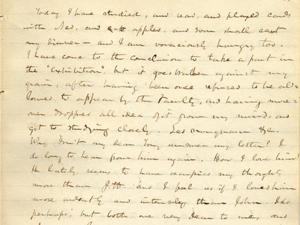 Today I have studied, and read, and played cards
with Ned, and eat apples, and soon shall eat
my dinner — and I am voraciously hungry too.
I have come to the conclusion to take a part in
the "Exhibition", but it goes against my
grain, after having been once refused to be al-
lowed to appear by the Faculty, and having more-
over dropped all idea of it from my mind, and
got to studying closely.
Why don't my dear Tony answer my letter? I
do long to hear from him again. How I love him!
He lately seems to have occupied my thoughts
more than and I feel as if I loved him
more ardently and intensely than John does
perhaps, but both are very dear to me, and